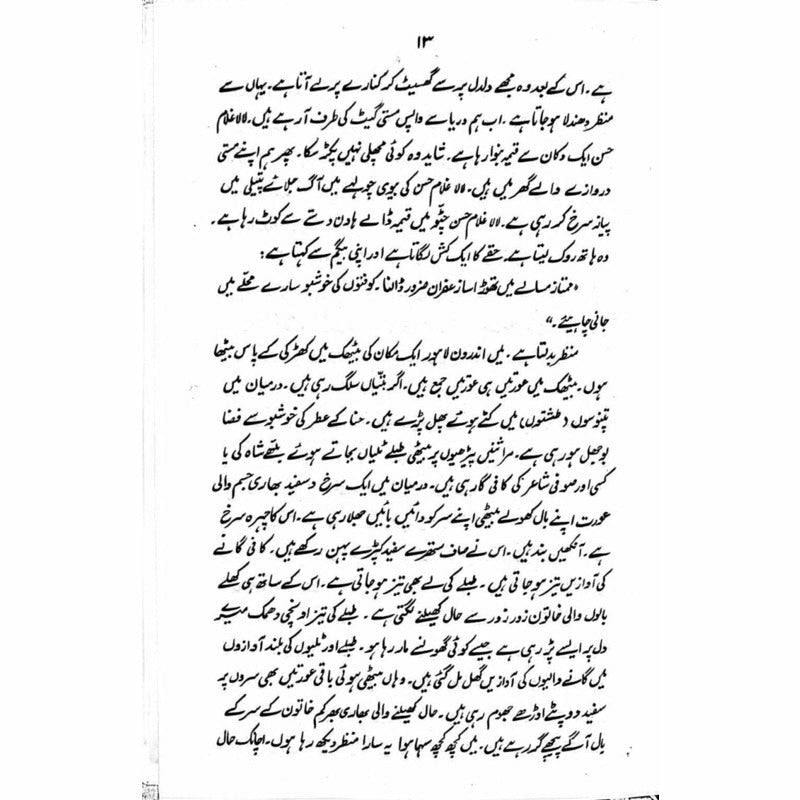 ۱۳
ہے۔ اس کے بعد وہ مجھے دلدل پر سے گھسیٹ کر کنارے پر لے آتا ہے۔ یہاں سے
منظر دھندلا ہو جاتا ہے۔ اب ہم دریا سے واپس مستی گیٹ کی طرف آ رہے ہیں۔ لالا غلام
حسن ایک دکان سے قیمہ بنوا رہا ہے۔ شاید وہ کوئی مچھلی نہیں پکڑ سکا۔ پھر ہم اپنے مستی
دروازے والے گھر میں ہیں۔ لالا غلام حسن کی بیوی چولہے میں آگ جلائے پتیلی میں
پیاز سرخ کر رہی ہے۔ لالا غلام حسن چٹو میں قیمہ ڈالے ہاون دستے سے کوٹ رہا ہے۔
وہ ہاتھ روک لیتا ہے۔ حقے کا ایک کش لگاتا ہے اور اپنی بیگم سے کہتا ہے :
"ممتاز مسالے میں تھوڑا سا زعفران ضرور ڈالنا۔ کوفتوں کی خوشبو سارے محلّے میں
جانی چاہیئے۔"
منظر بدلتا ہے۔ میں اندرون لاہور ایک مکان کی بیٹھک میں کھڑکی کے پاس بیٹھا
ہوں۔ بیٹھک میں عورتیں ہی عورتیں جمع ہیں۔ اگر بتیاں سلگ رہی ہیں۔ درمیان میں
تپنوسوں (طشتوں) میں کٹے ہوئے پھل پڑے ہیں۔ حنا کے عطر کی خوشبو سے فضا
بوجھل ہو رہی ہے۔ مراثنیں پیڑھیوں پر بیٹھی طبلے ٹلیاں بجاتے ہوئے بلّھے شاہ کی یا
کسی اور صوفی شاعر کی کافی گا رہی ہیں۔ درمیان میں ایک سرخ و سفید بھاری جسم والی
عورت اپنے بال کھولے بیٹھی اپنے سر کو دائیں بائیں ہلا رہی ہے۔ اس کا چہرہ سرخ
ہے۔ آنکھیں بند ہیں۔ اس نے صاف ستھرے سفید کپڑے پہن رکھے ہیں۔ کافی گانے
کی آوازیں تیز ہو جاتی ہیں۔ طبلے کی لے بھی تیز ہو جاتی ہے۔ اس کے ساتھ ہی کھلے
بالوں والی خاتون زور زور سے حال کھیلنے لگتی ہے۔ طبلے کی تیز اونچی دھمک میرے
دل پر ایسے پڑ رہی ہے جیسے کوئی گھونسے مار رہا ہو۔ طبلے اور ٹلیوں کی بلند آوازوں
میں گانے والیوں کی آوازیں گھل مل گئی ہیں۔ وہاں بیٹھی ہوئی باقی عورتیں بھی سروں پر
سفید دوپٹے اوڑھے جھوم رہی ہیں۔ حال کھیلنے والی بھاری بھرکم خاتون کے سر کے
بال آگے پیچھے گر رہے ہیں۔ میں کچھ کچھ سہما ہوا یہ سارا منظر دیکھ رہا ہوں۔ اچانک حال